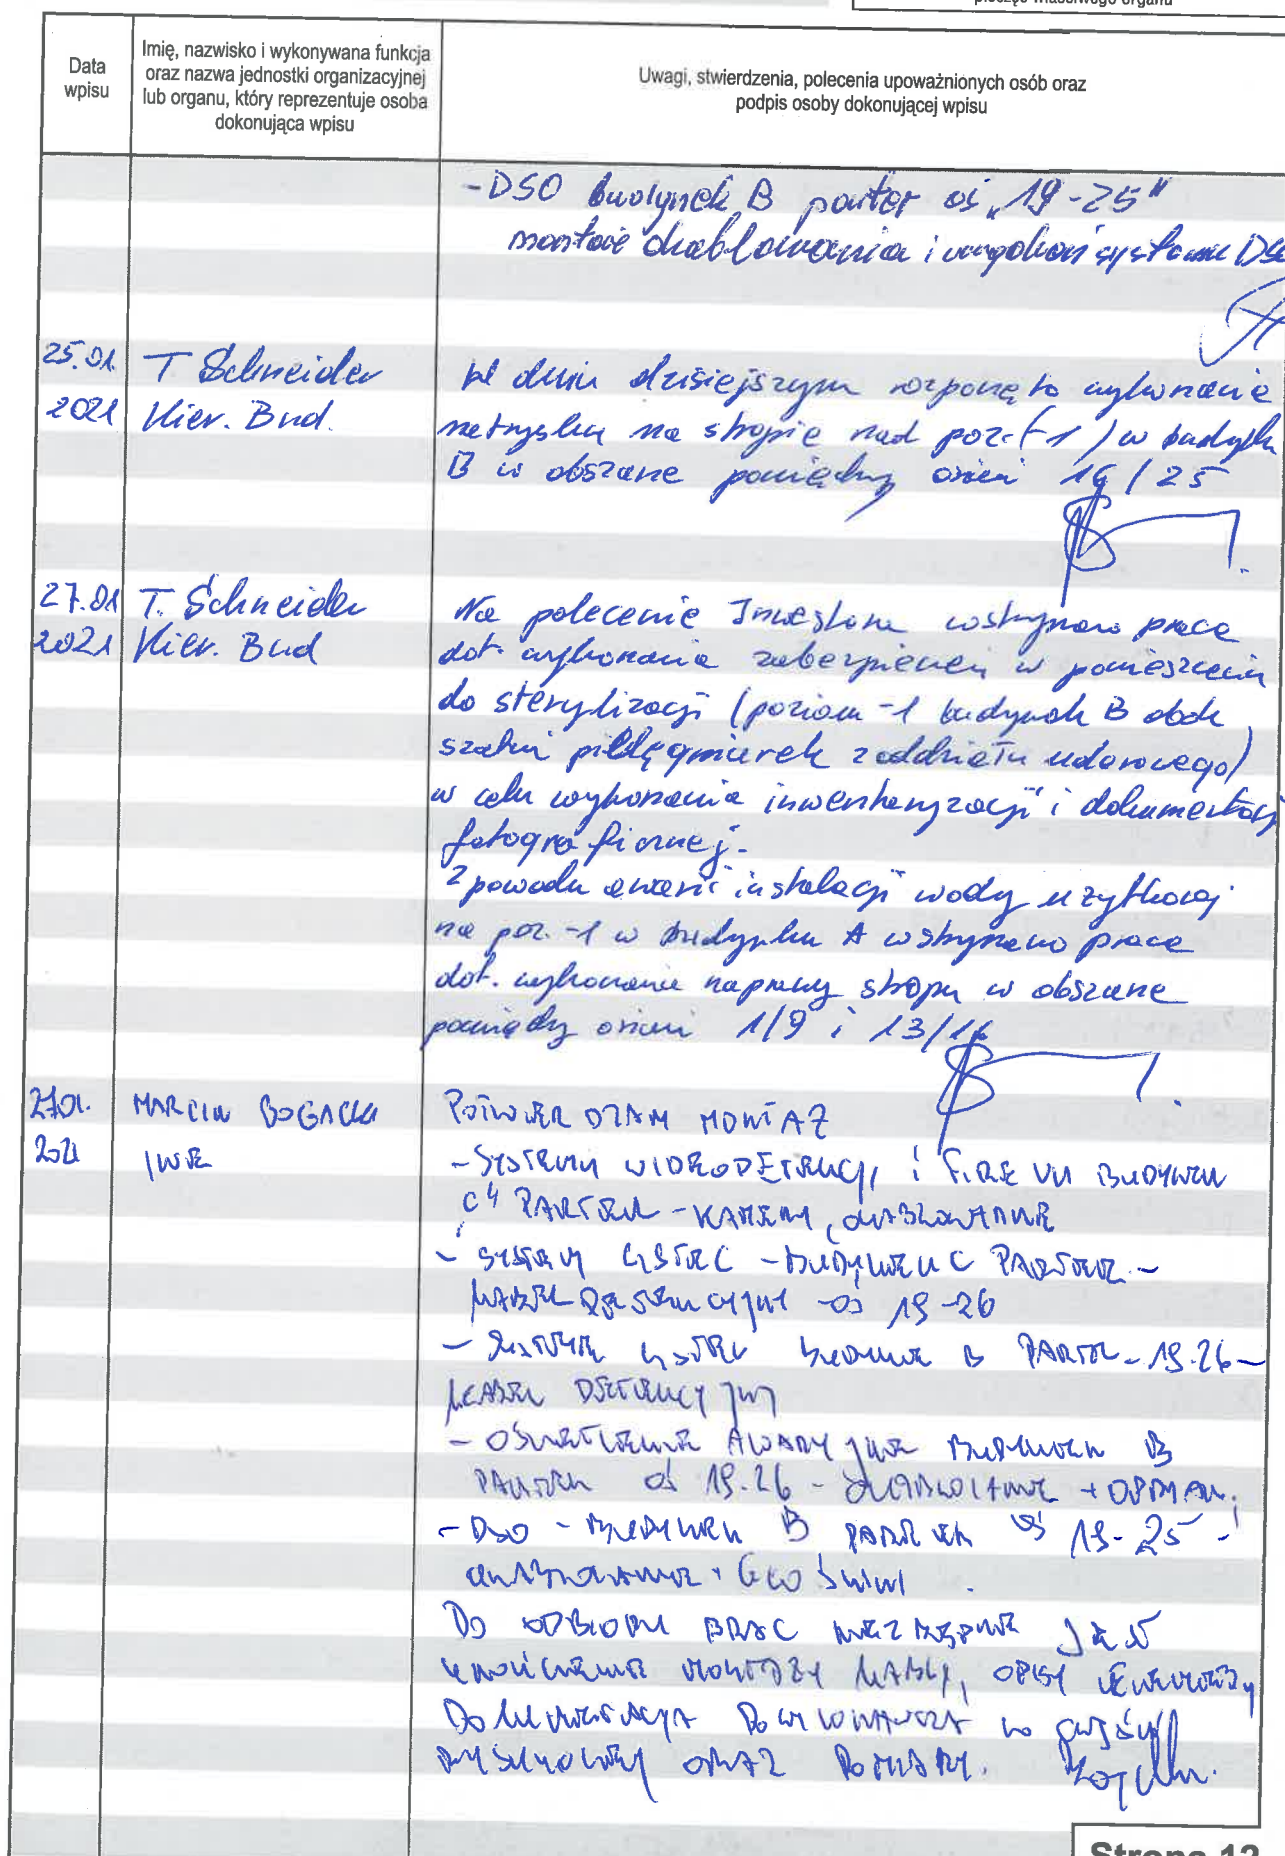 Data
wpisu
Imię, nazwisko i wykonywana funkcja
oraz nazwa jednostki organizacyjnej
lub organu, który reprezentuje osoba
dokonująca wpisu
Uwagi, stwierdzenia, polecenia upoważnionych osób oraz
podpis osoby dokonującej wpisu
- DSO budynek B parter oś „19-25"
montaż okablowania i systemu DSO
25.01.
2021
T Schneider
Kier. Bud.
W dniu dzisiejszym rozpoczęto wykonanie
natrysku na stropie nad poz. (-1) w budynku
B w obszarze pomiędzy osiami 19/25
27.01
2021
T. Schneider
Kier. Bud
Na polecenie Inwestora wstrzymano prace
dot. wykonania zabezpieczeń w pomieszczeniu
do sterylizacji (poziom -1 budynek B obok
szatni pielęgniarek z oddziału udarowego)
w celu wykonania inwentaryzacji i dokumentacji
fotograficznej.
Z powodu awarii instalacji wody użytkowej
na poz. -1 w budynku A wstrzymano prace
dot. wykonania naprawy stropu w obszarze
pomiędzy osiami 1/9 i 13/16
27.01.
2021
MARCIN BOGACKI
POTWIERDZAM MONTAŻ
- SYSTEMU WIDEODETEKCJI I FIRE VU BUDYNEK
„C" PARTER - KAMERY, OKABLOWANIE
- BUDYNEK C PARTER -
KABEL DETEKCYJNY - OŚ 19-26
- BUDYNEK B PARTER - 19.26 -
KABEL DETEKCYJNY
- OŚWIETLENIE AWARYJNE BUDYNEK B
PARTER OŚ 19.26 - OKABLOWANIE + OPRAWY
- DSO - BUDYNEK B PARTER OŚ 19-25 -
OKABLOWANIE + GŁOŚNIKI.
DO ODBIORU PRAC NIEZBĘDNE JEST
UKOŃCZENIE MONTAŻU KABLI, OPISY
DOKUMENTACJA POWYKONAWCZA W CZĘŚCI
RYSUNKOWEJ ORAZ POMIARY.
Strona 12